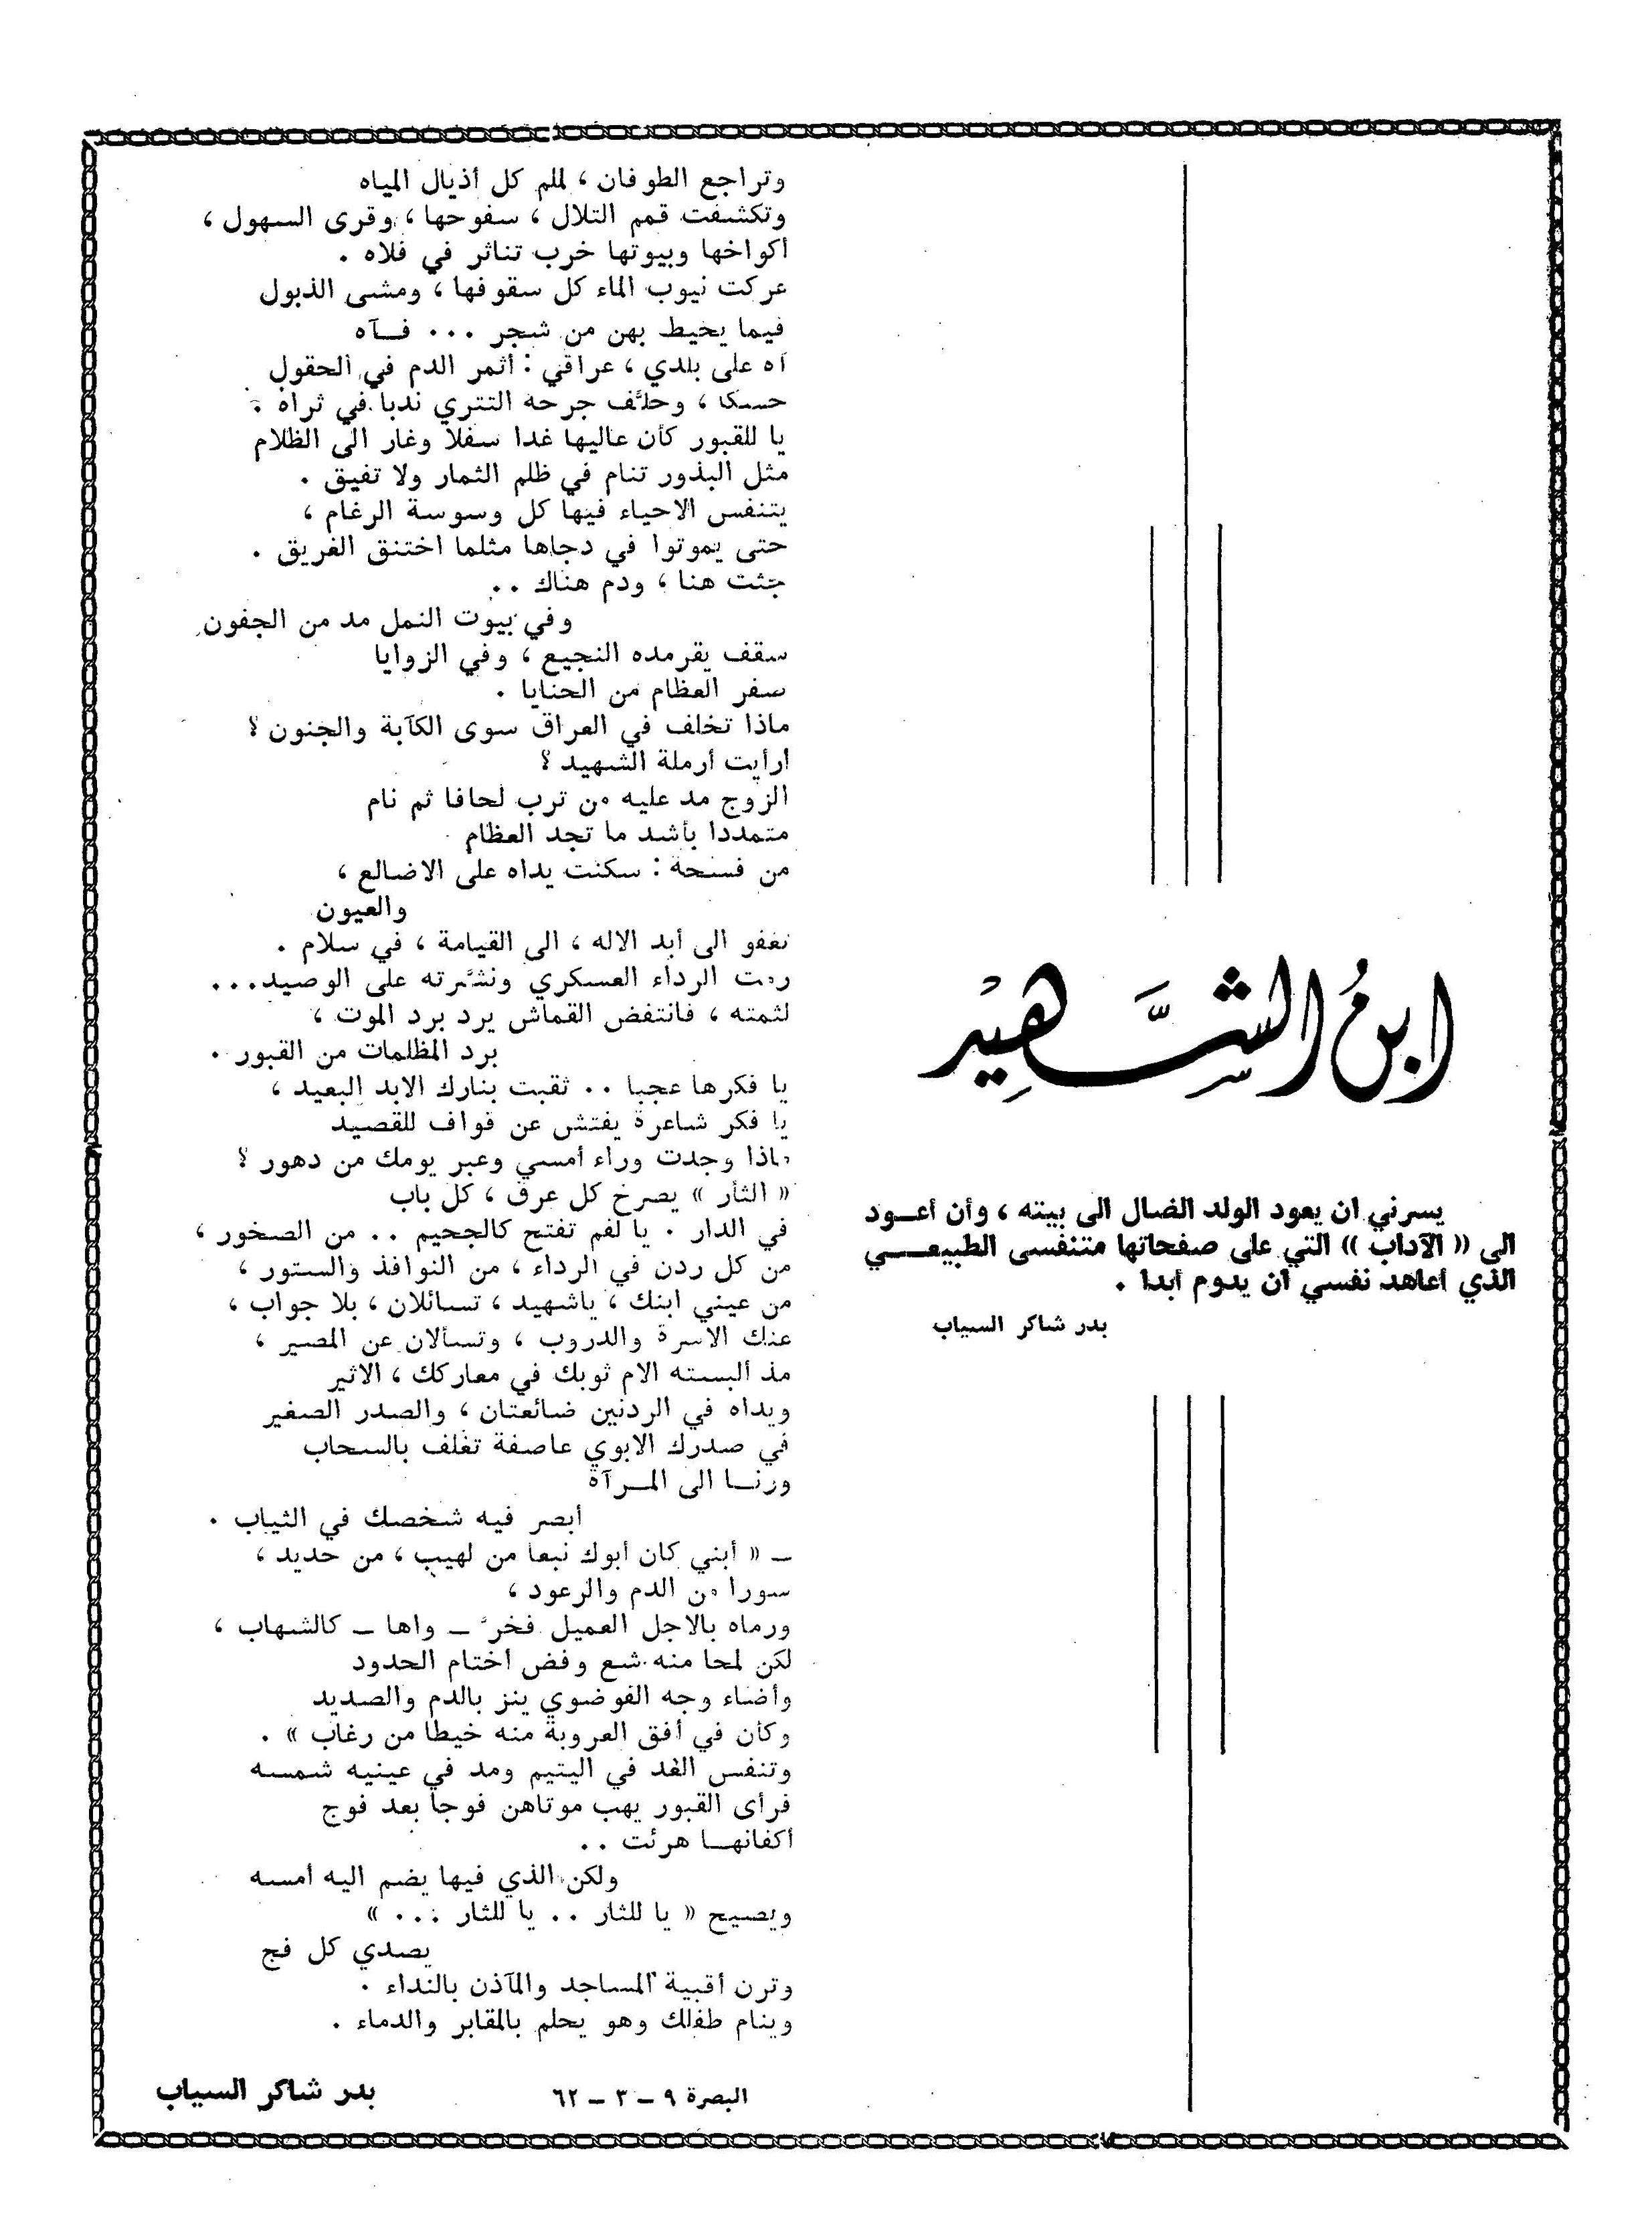 ابنُ الشَّهيدْ
يسرني ان يعود الولد الضال الى بيته ، وأن أعـــود
الى (( الآداب )) التي على صفحاتها متنفسى الطبيعـــــي
الذي أعاهد نفسي ان يدوم أبدا .
بدر شاكر السياب
وتراجع الطوفان ، للم كل أذيال المياه
وتكشفت قمم التلال ، سفوحها ، وقرى السهول ،
أكواخها وبيوتها خرب تناثر في فلاه .
عركت نيوب الماء كل سقوفها ، ومشى الذبول
فيما يحيط بهن من شجر ... فــآه
آه على بلدي ، عراقي : أثمر الدم في الحقول
حسكا ، وخلَّف جرحه التتري ندبا في ثراه .
يا للقبور كأن عاليها غدا سفلا وغار الى الظلام
مثل البذور تنام في ظلم الثمار ولا تفيق .
يتنفس الاحياء فيها كل وسوسة الرغام ،
حتى يموتوا في دجاها مثلما اختنق الغريق .
جثث هنا ، ودم هناك ..
وفي بيوت النمل مد من الجفون
سقف يقرمده النجيع ، وفي الزوايا
سفر العظام من الحنايا .
ماذا تخلف في العراق سوى الكآبة والجنون ؟
ارأيت أرملة الشهيد ؟
الزوج مد عليه من ترب لحافا ثم نام
متمددا بأشد ما تجد العظام
من فسحة : سكنت يداه على الاضالع ،
والعيون
تغفو الى أبد الاله ، الى القيامة ، في سلام .
رمت الرداء العسكري ونشَّرته على الوصيد...
لثمته ، فانتفض القماش يرد برد الموت ،
برد المظلمات من القبور .
يا فكرها عجبا .. ثقبت بنارك الابد البعيد ،
يا فكر شاعرة يفتش عن قواف للقصيد
ماذا وجدت وراء أمسي وعبر يومك من دهور ؟
« الثأر » يصرخ كل عرق ، كل باب
في الدار . يا لفم تفتح كالجحيم .. من الصخور ،
من كل ردن في الرداء ، من النوافذ والستور ،
من عيني ابنك ، ياشهيد ، تسائلان ، بلا جواب ،
عنك الاسرة والدروب ، وتسألان عن المصير ،
مذ ألبسته الام ثوبك في معاركك ، الاثير
ويداه في الردنين ضائعتان ، والصدر الصغير
في صدرك الابوي عاصفة تغلف بالسحاب
ورنــا الى المــرآة
أبصر فيه شخصك في الثياب .
ــ « أبني كان أبوك نبعا من لهيب ، من حديد ،
سورا من الدم والرعود ،
ورماه بالاجل العميل فخرَّ ــ واها ــ كالشهاب ،
لكن لمحا منه شع وفض أختام الحدود
وأضاء وجه الفوضوي ينز بالدم والصديد
وكأن في أفق العروبة منه خيطا من رغاب » .
وتنفس الغد في اليتيم ومد في عينيه شمسه
فرأى القبور يهب موتاهن فوجا بعد فوج
أكفانهــا هرئت ..
ولكن الذي فيها يضم اليه أمسه
ويصيح « يا للثار .. يا للثار ... »
يصدي كل فج
وترن أقبية المساجد والمآذن بالنداء .
وينام طفلك وهو يحلم بالمقابر والدماء .
البصرة ٩ ــ ٣ ــ ٦٢
بدر شاكر السياب